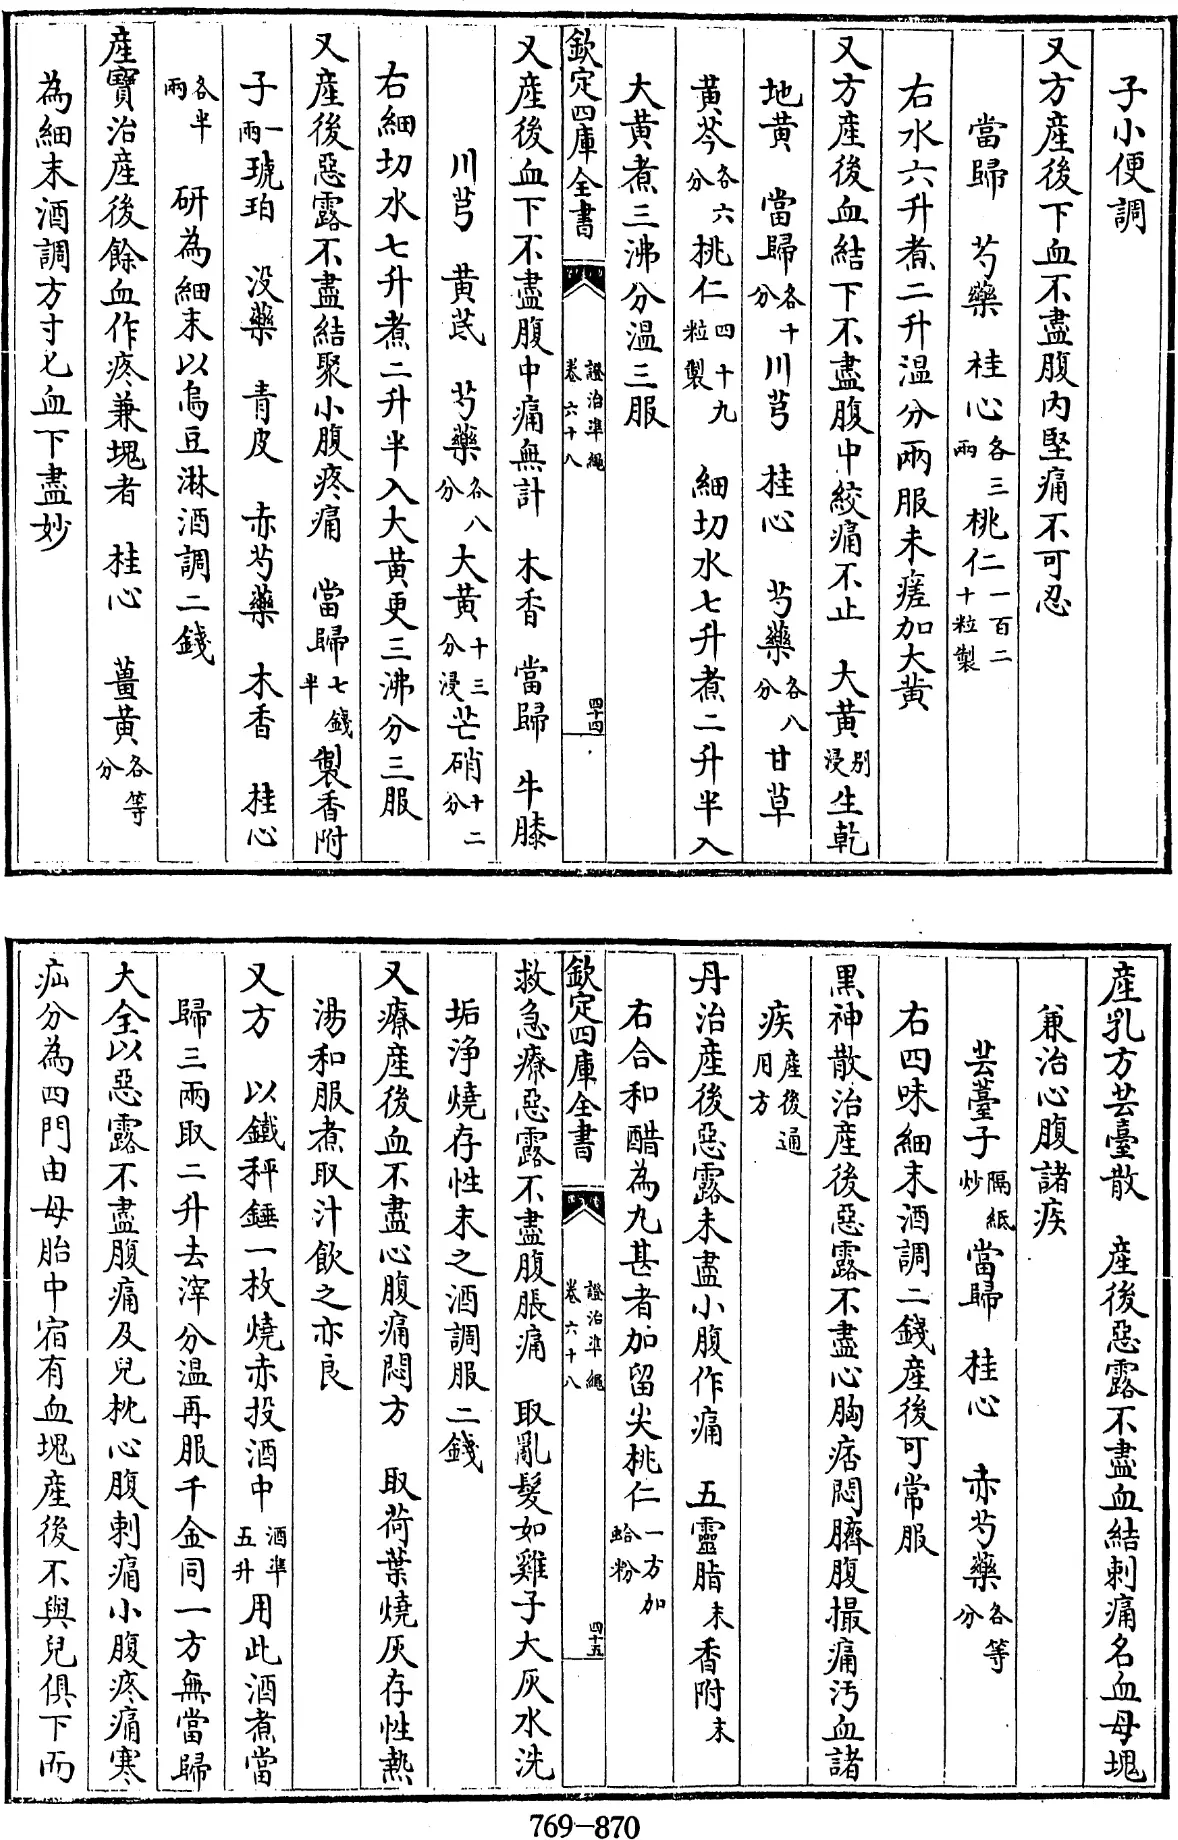 子小便調
又方産後下血不盡腹内堅痛不可忍
當歸　芍藥　桂心各三兩桃仁一百二十粒製
右水六升煮二升温分兩服未瘥加大黄
又方産後血結下不盡腹中絞痛不止　大黄别浸生乾
地黄　當歸各十分川芎　桂心　芍藥各八分甘草
黄芩各六分桃仁四十九粒製　細切水七升煮二升半入
大黄煮三沸分温三服
欽定四庫全書　證治準繩卷六十八　四十四
又産後血下不盡腹中痛無計　木香　當歸　牛膝
川芎　黄芪　芍藥各八分大黄十三分浸芒硝十二分
右細切水七升煮二升半入大黄更三沸分三服
又産後惡露不盡結聚小腹疼痛　當歸七錢半製香附
子一兩琥珀　没藥　青皮　赤芍藥　木香　桂心
各半兩　研為細末以烏豆淋酒調二錢
産寶治産後餘血作疼兼塊者　桂心　薑黄各等分
為細末酒調方寸匕血下盡妙
産乳方芸薹散　産後惡露不盡血結刺痛名血母塊
兼治心腹諸疾
芸薹子隔紙炒當歸　桂心　赤芍藥各等分
右四味細末酒調二錢産後可常服
黒神散治産後惡露不盡心胸痞悶臍腹撮痛汚血諸
疾産後通用方
丹治産後惡露未盡小腹作痛　五靈脂末香附末
右合和醋為丸甚者加留尖桃仁一方加蛤粉
欽定四庫全書　證治準繩卷六十八　四十五
救急療惡露不盡腹脹痛　取亂髮如雞子大灰水洗
垢浄燒存性末之酒調服二錢
又療産後血不盡心腹痛悶方　取荷葉燒灰存性熱
湯和服煮取汁飲之亦良
又方　以鐵秤錘一枚燒赤投酒中酒準五升用此酒煮當
歸三兩取二升去滓分温再服千金同一方無當歸
大全以惡露不盡腹痛及兒枕心腹刺痛小腹疼痛寒
疝分為四門由母胎中宿有血塊産後不與兒俱下而
769-870